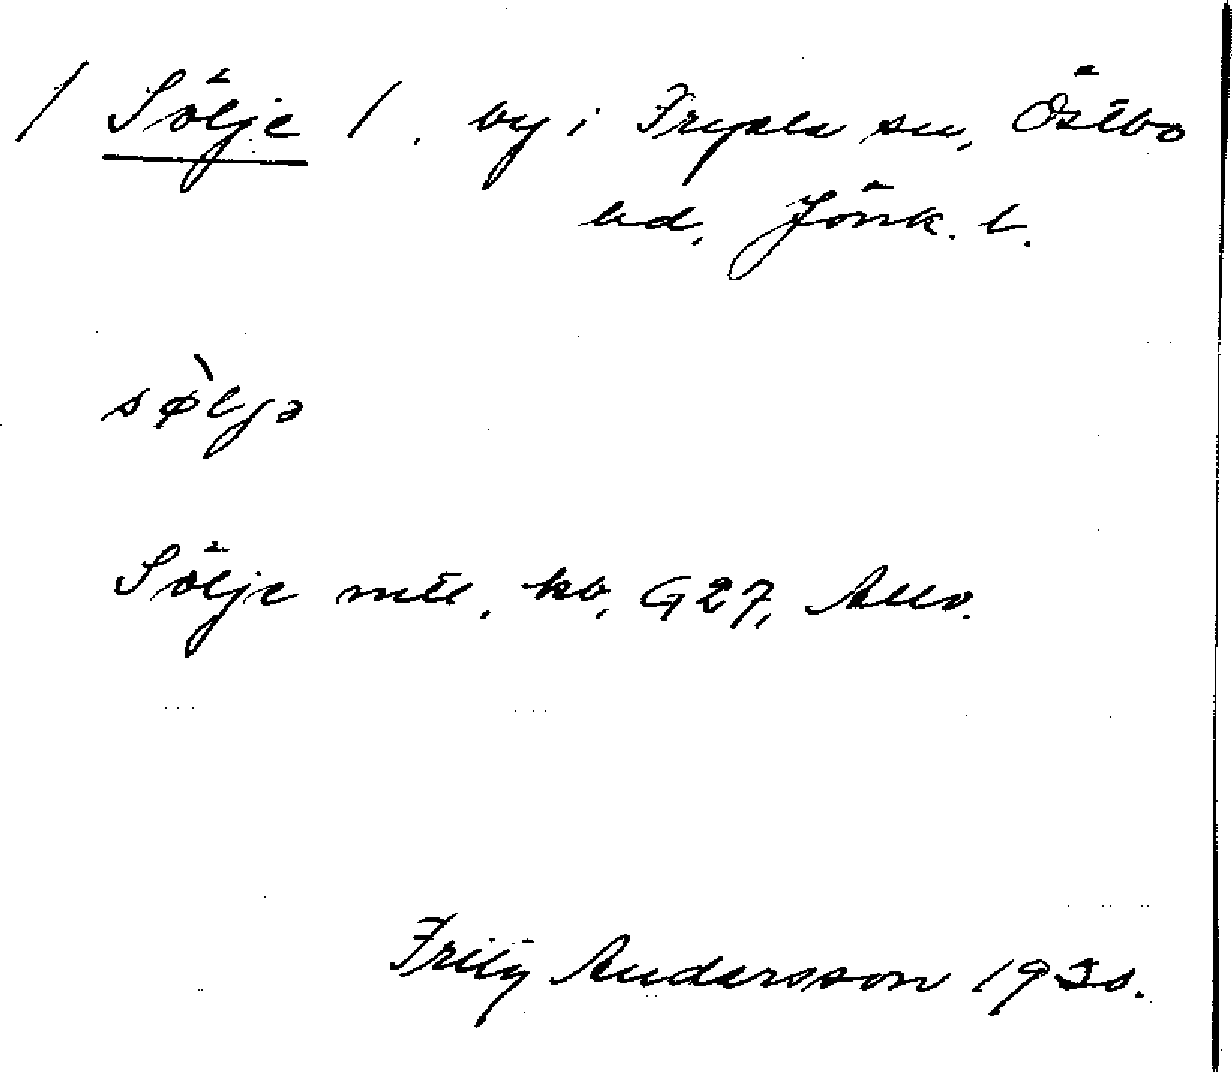 / Sölje /. by i Fryele sn, Östbo
hd, Jönk. l.
sø̀ljə
Sölje mtl. kb, G27, Allv.
Fritz Andersson 1930.